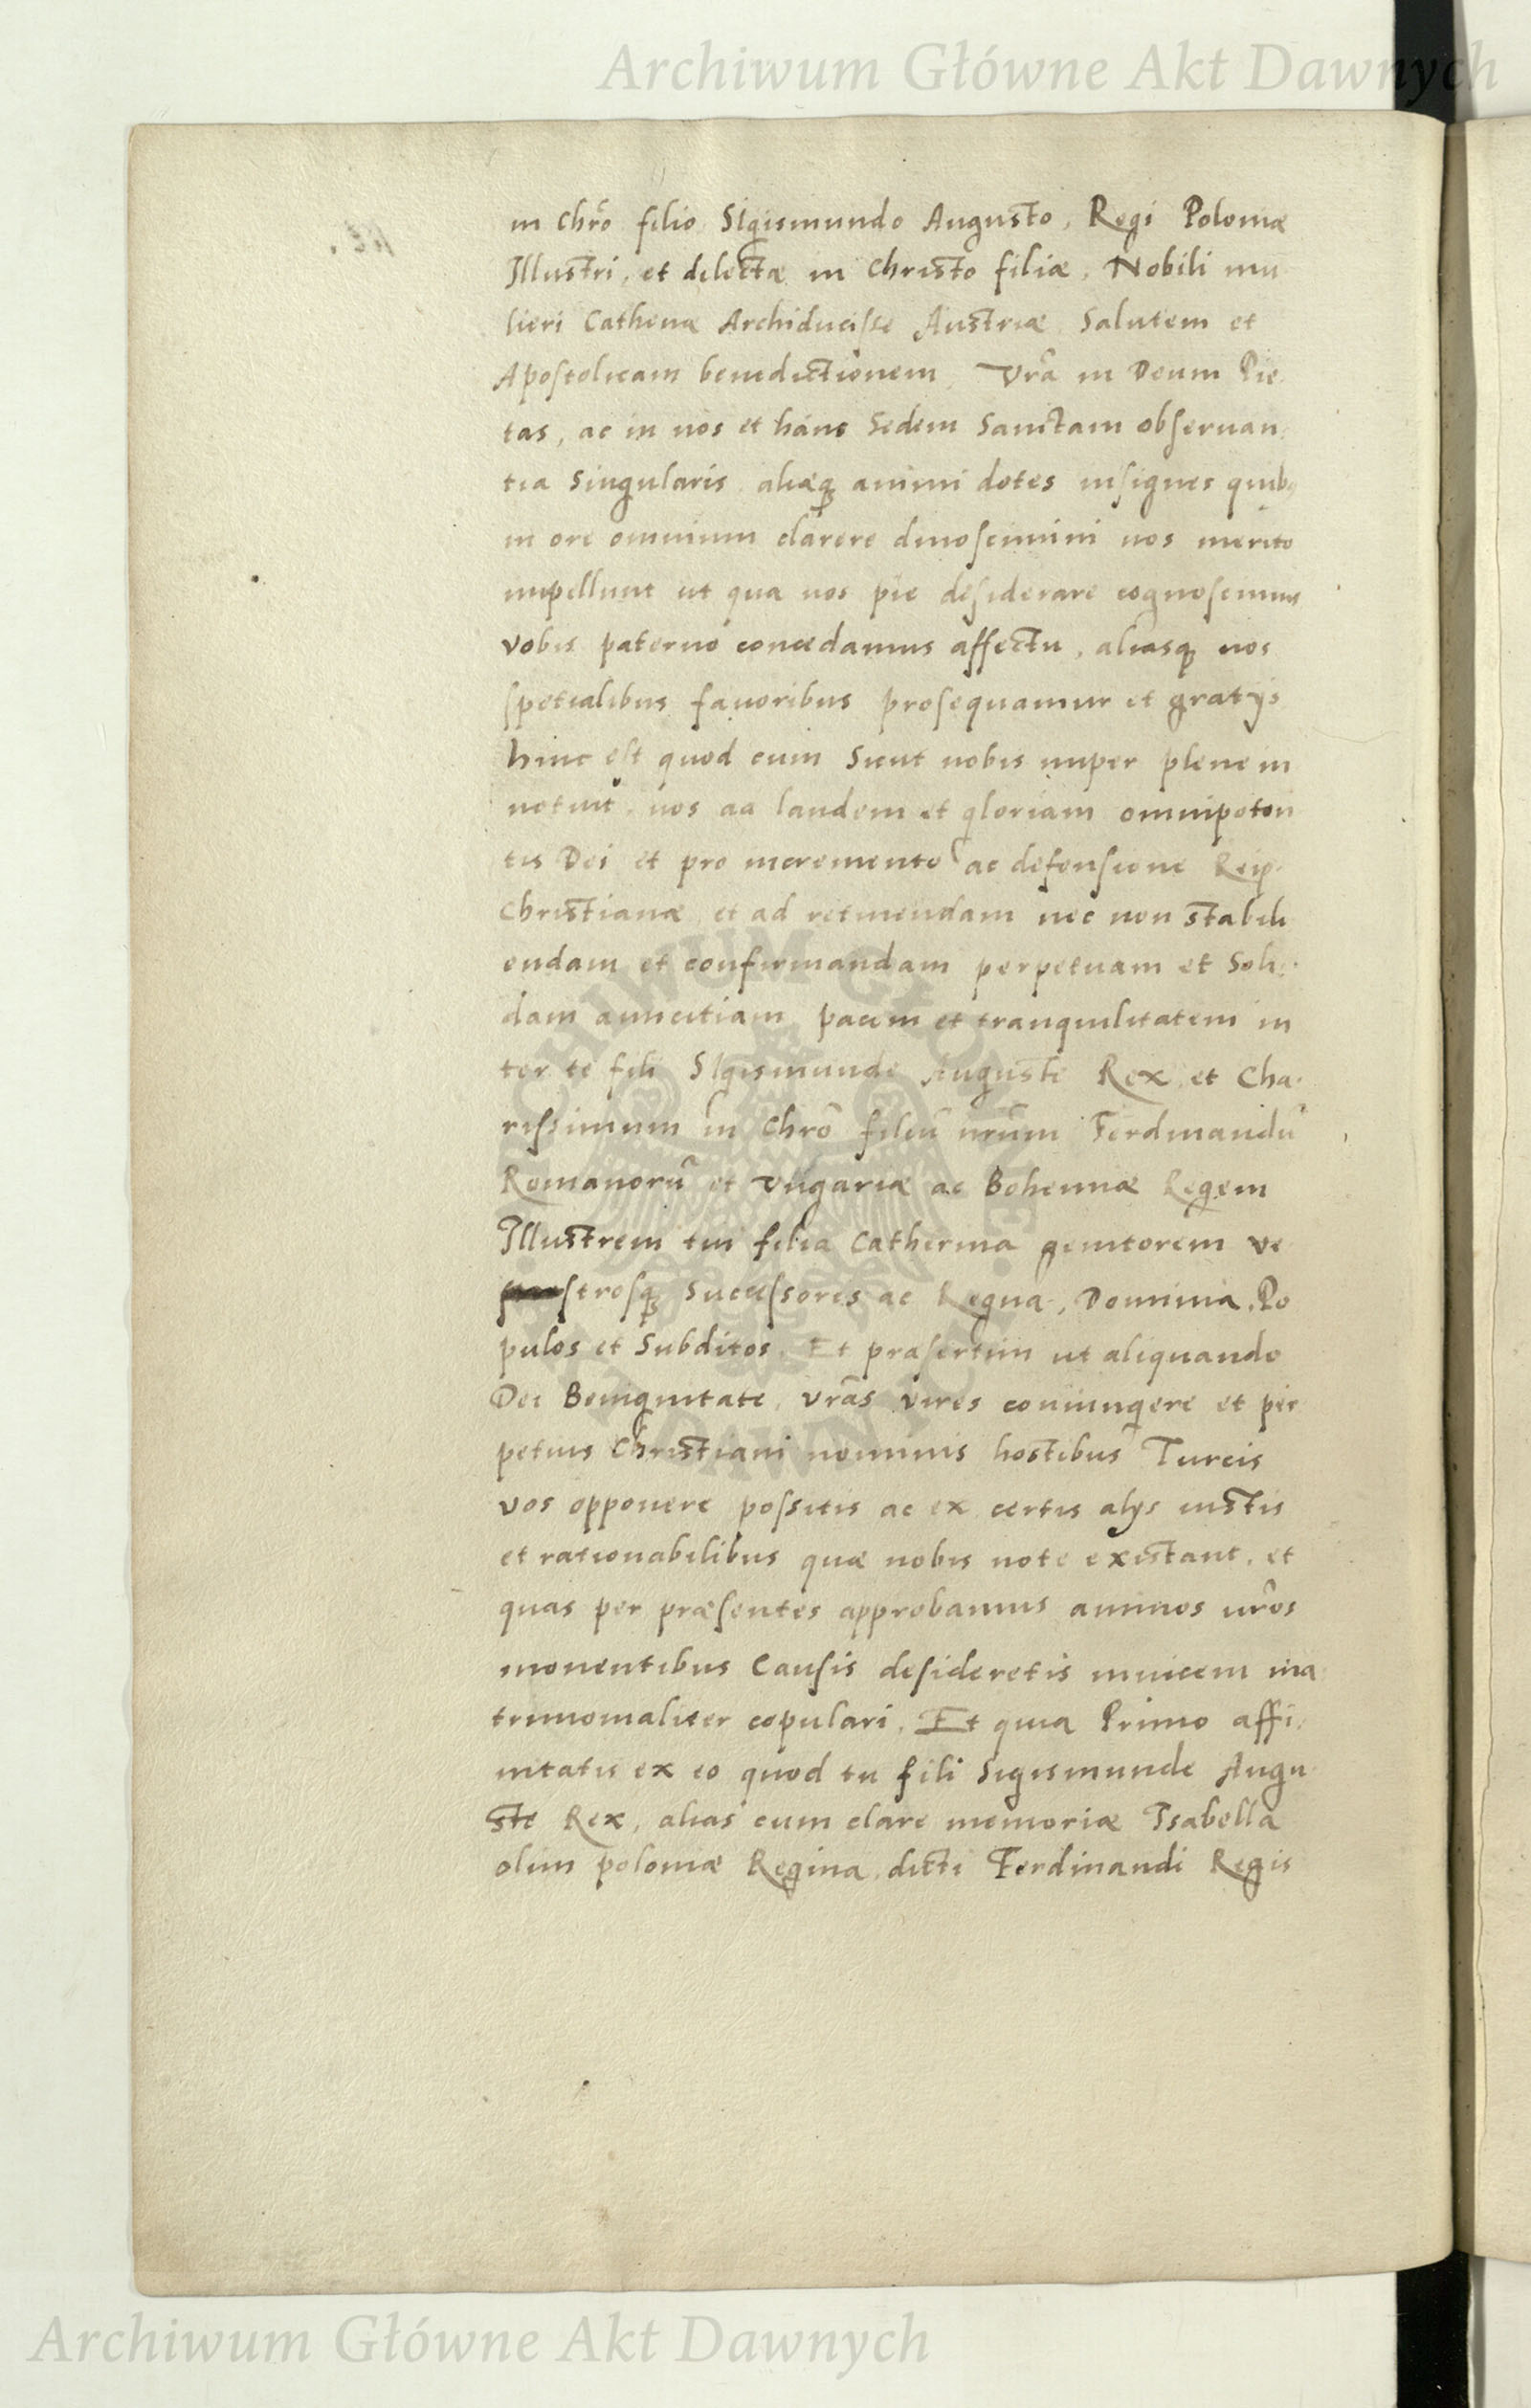 Archiwum Główne Akt Dawnych
in Chrõ filio Sigismundo Augusto, Regi Poloniæ
Illustri, et dilectæ in Christo filiæ, Nobili mu
lieri Cathenæ Archiducisse Austriæ Salutem et
Apostolicam benedictionem, Vrã in Deum Pie
tas, ac in nos et hanc Sedem Sanctam obseruan
tia Singularis aliæq animi dotes insignes quib9
in ore omnium clarere dinoscimini nos merito
impellunt ut qua vos pie desiderare cognoscimus
vobis paterno concedamus affectu, aliasq vos
spetialibus fauoribus prosequamur et gratijs
hinc est quod cum Sicut nobis nuper plene in
notuit, vos ad laudem et gloriam omnipoten
tis Dei et pro incremento ac defensione Reip.
Christianæ et ad retinendam nec non stabili
endam et confirmandam perpetuam et Soli
dam amicitiam pacem et tranquilitatem in
ter te fili Sigismunde Auguste Rex, et Cha
rissimum in Chrõ filiũ nrũm Ferdinandũ
Romanorũ et Vngariæ ac Bohemiæ Regem
Illustrem tui filia Catherina genitorem ve
strosq Successores ac Regna, Dominia, Po
pulos et Subditos. Et præsertim ut aliquando
Dei Benignitate, vrãs vires coniungere et per
petuis Christiani nominis hostibus Turcis
vos opponere possitis ac ex certis alijs iustis
et rationabilibus quæ nobis note existant, et
quas per præsentes approbamus animos vrõs
mouentibus Causis desideretis inuicem ma
trimonialiter copulari. Et quia Primo affi
nitatis ex eo quod tu fili Sigismunde Augu
ste Rex, alias cum clare memoriæ Isabella
olim poloniæ Regina, dicti Ferdinandi Regis
Archiwum Główne Akt Dawnych